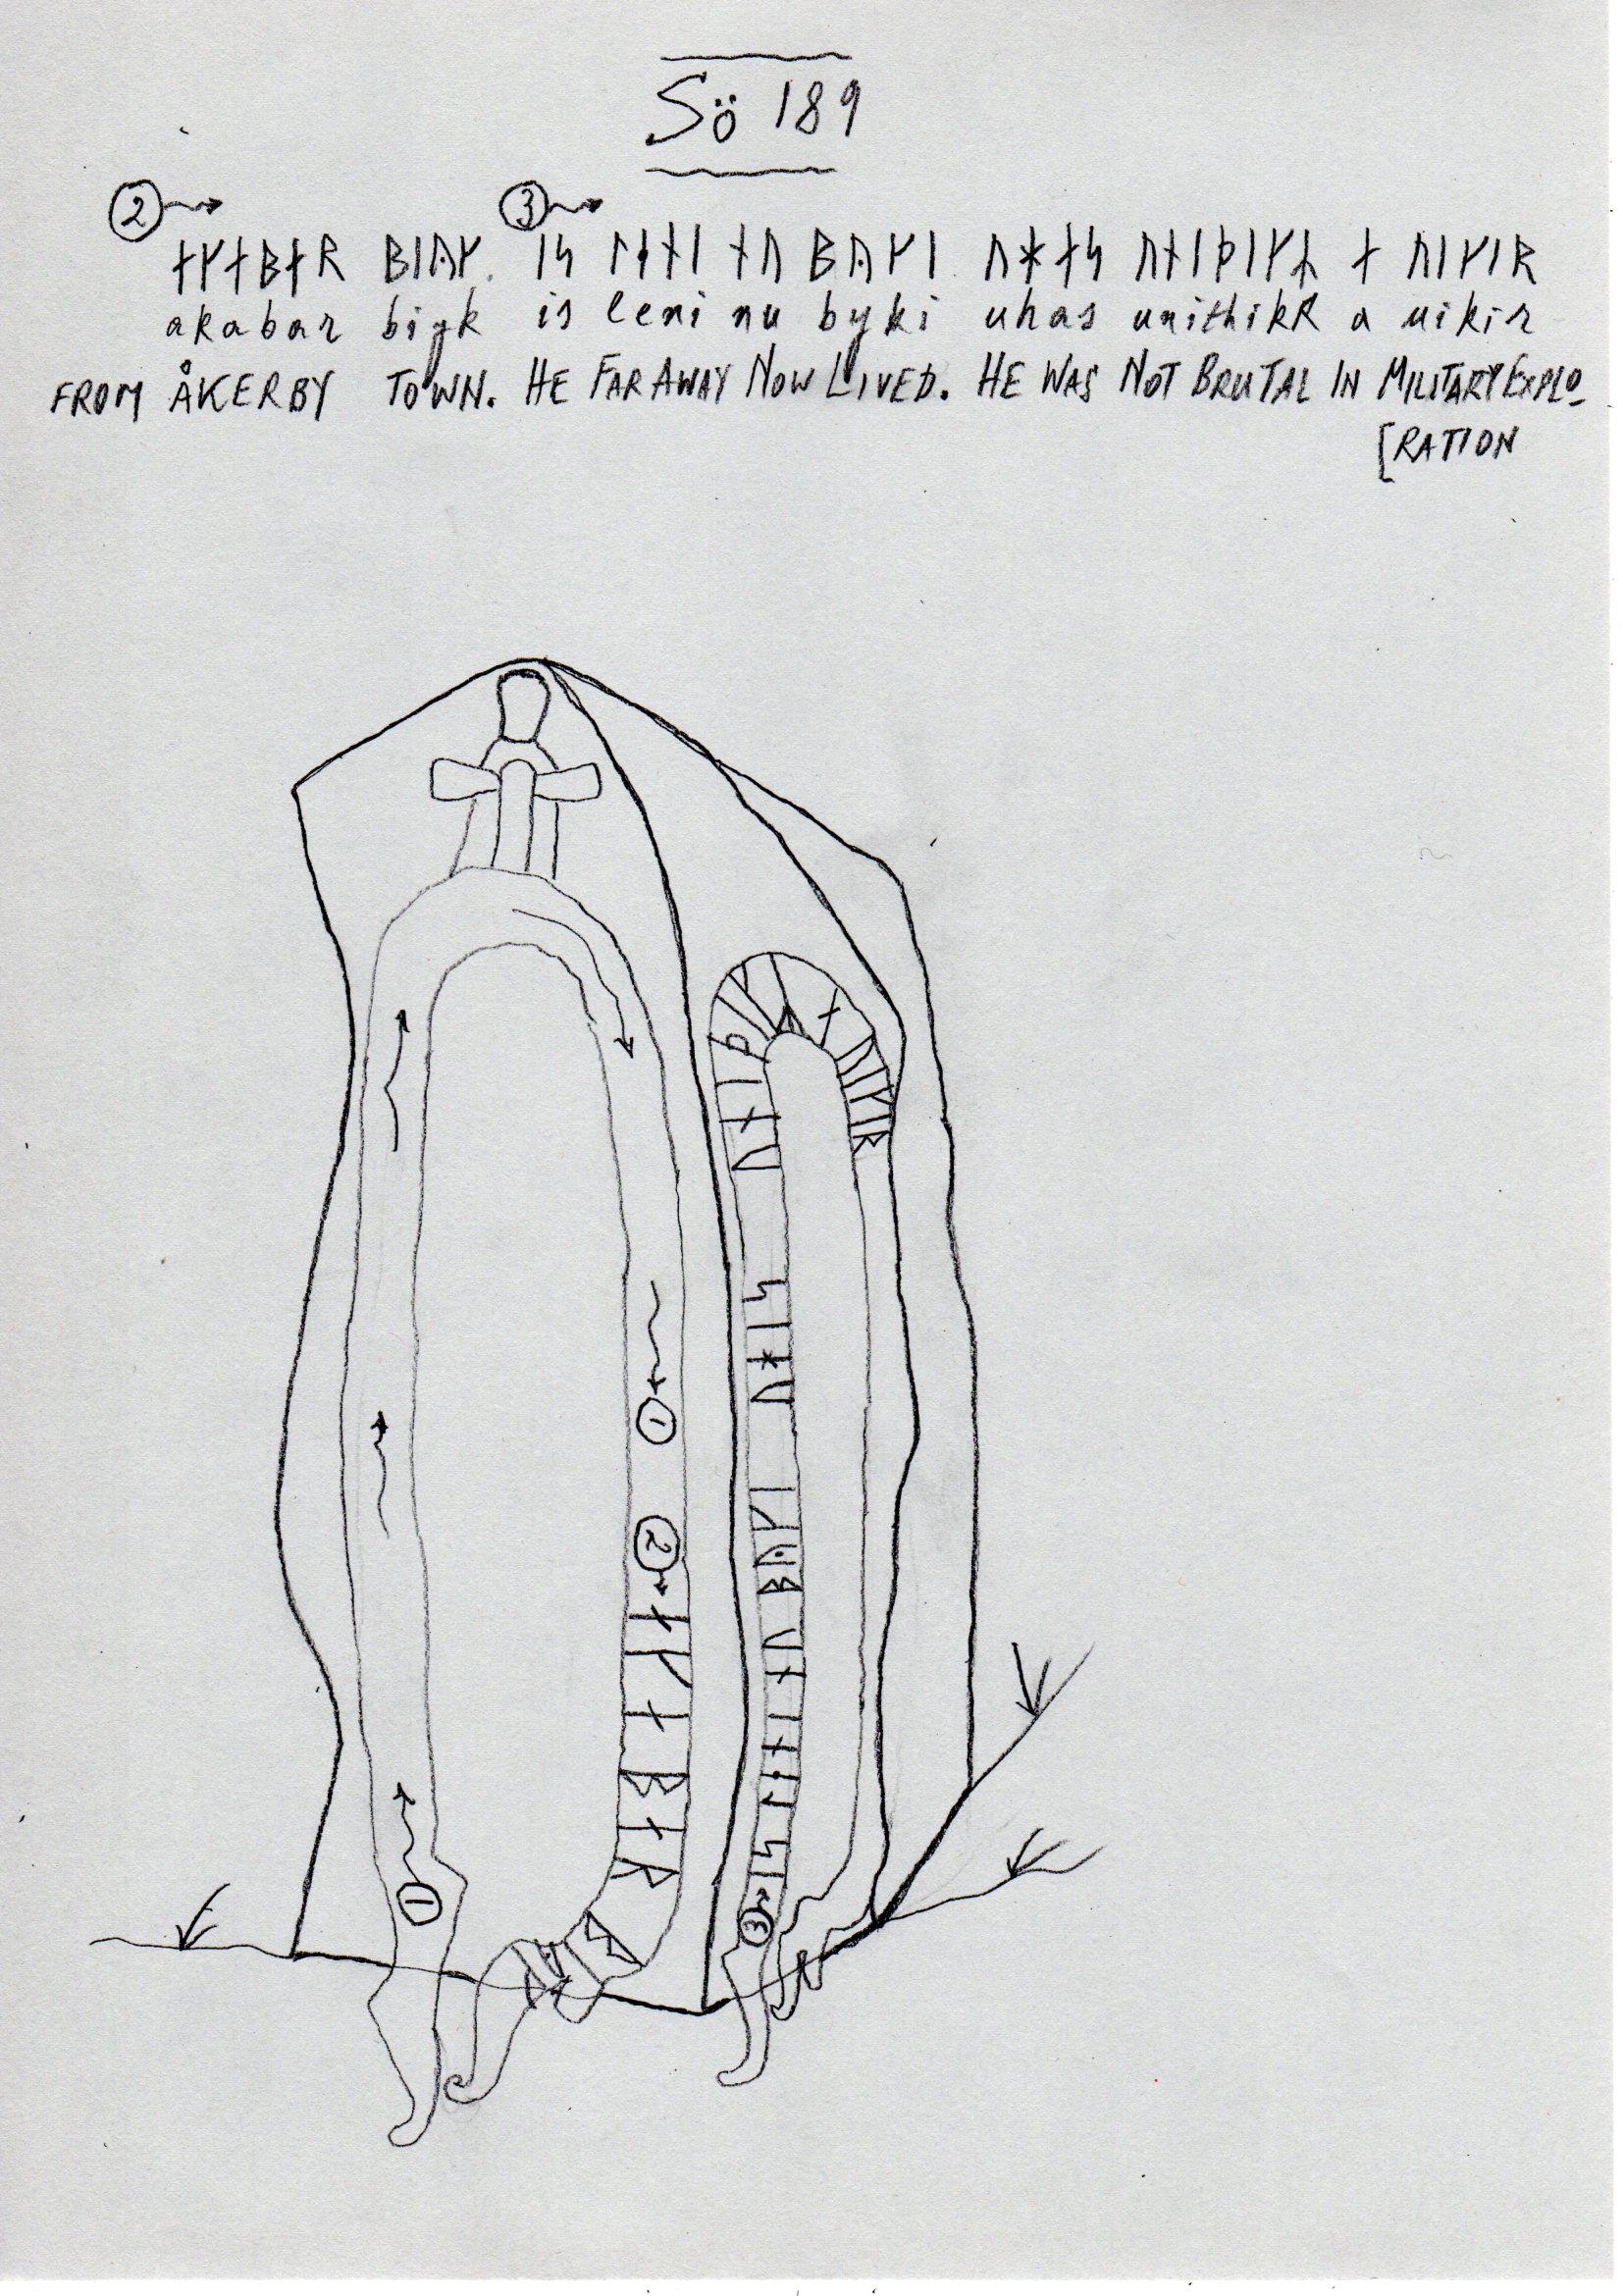 Sö 189
② ③
ᚾᚴᚾᛒᚾᚱ ᛒᛁᚤᚴ. ᛁᛋ ᛚᛂᚾᛁ ᚾᚢ ᛒᚤᚴᛁ. ᚢᚼᛅᛋ ᚢᚾᛁᚦᛁᚴᛦ ᛅ ᚢᛁᚴᛁᚱ
akabar biyk is leni nu byki uhas unithikR a uikir
FROM ÅKERBY TOWN. HE FAR AWAY NOW LIVED. HE WAS NOT BRUTAL IN MILITARY EXPLO_
[RATION
①
②
③
①